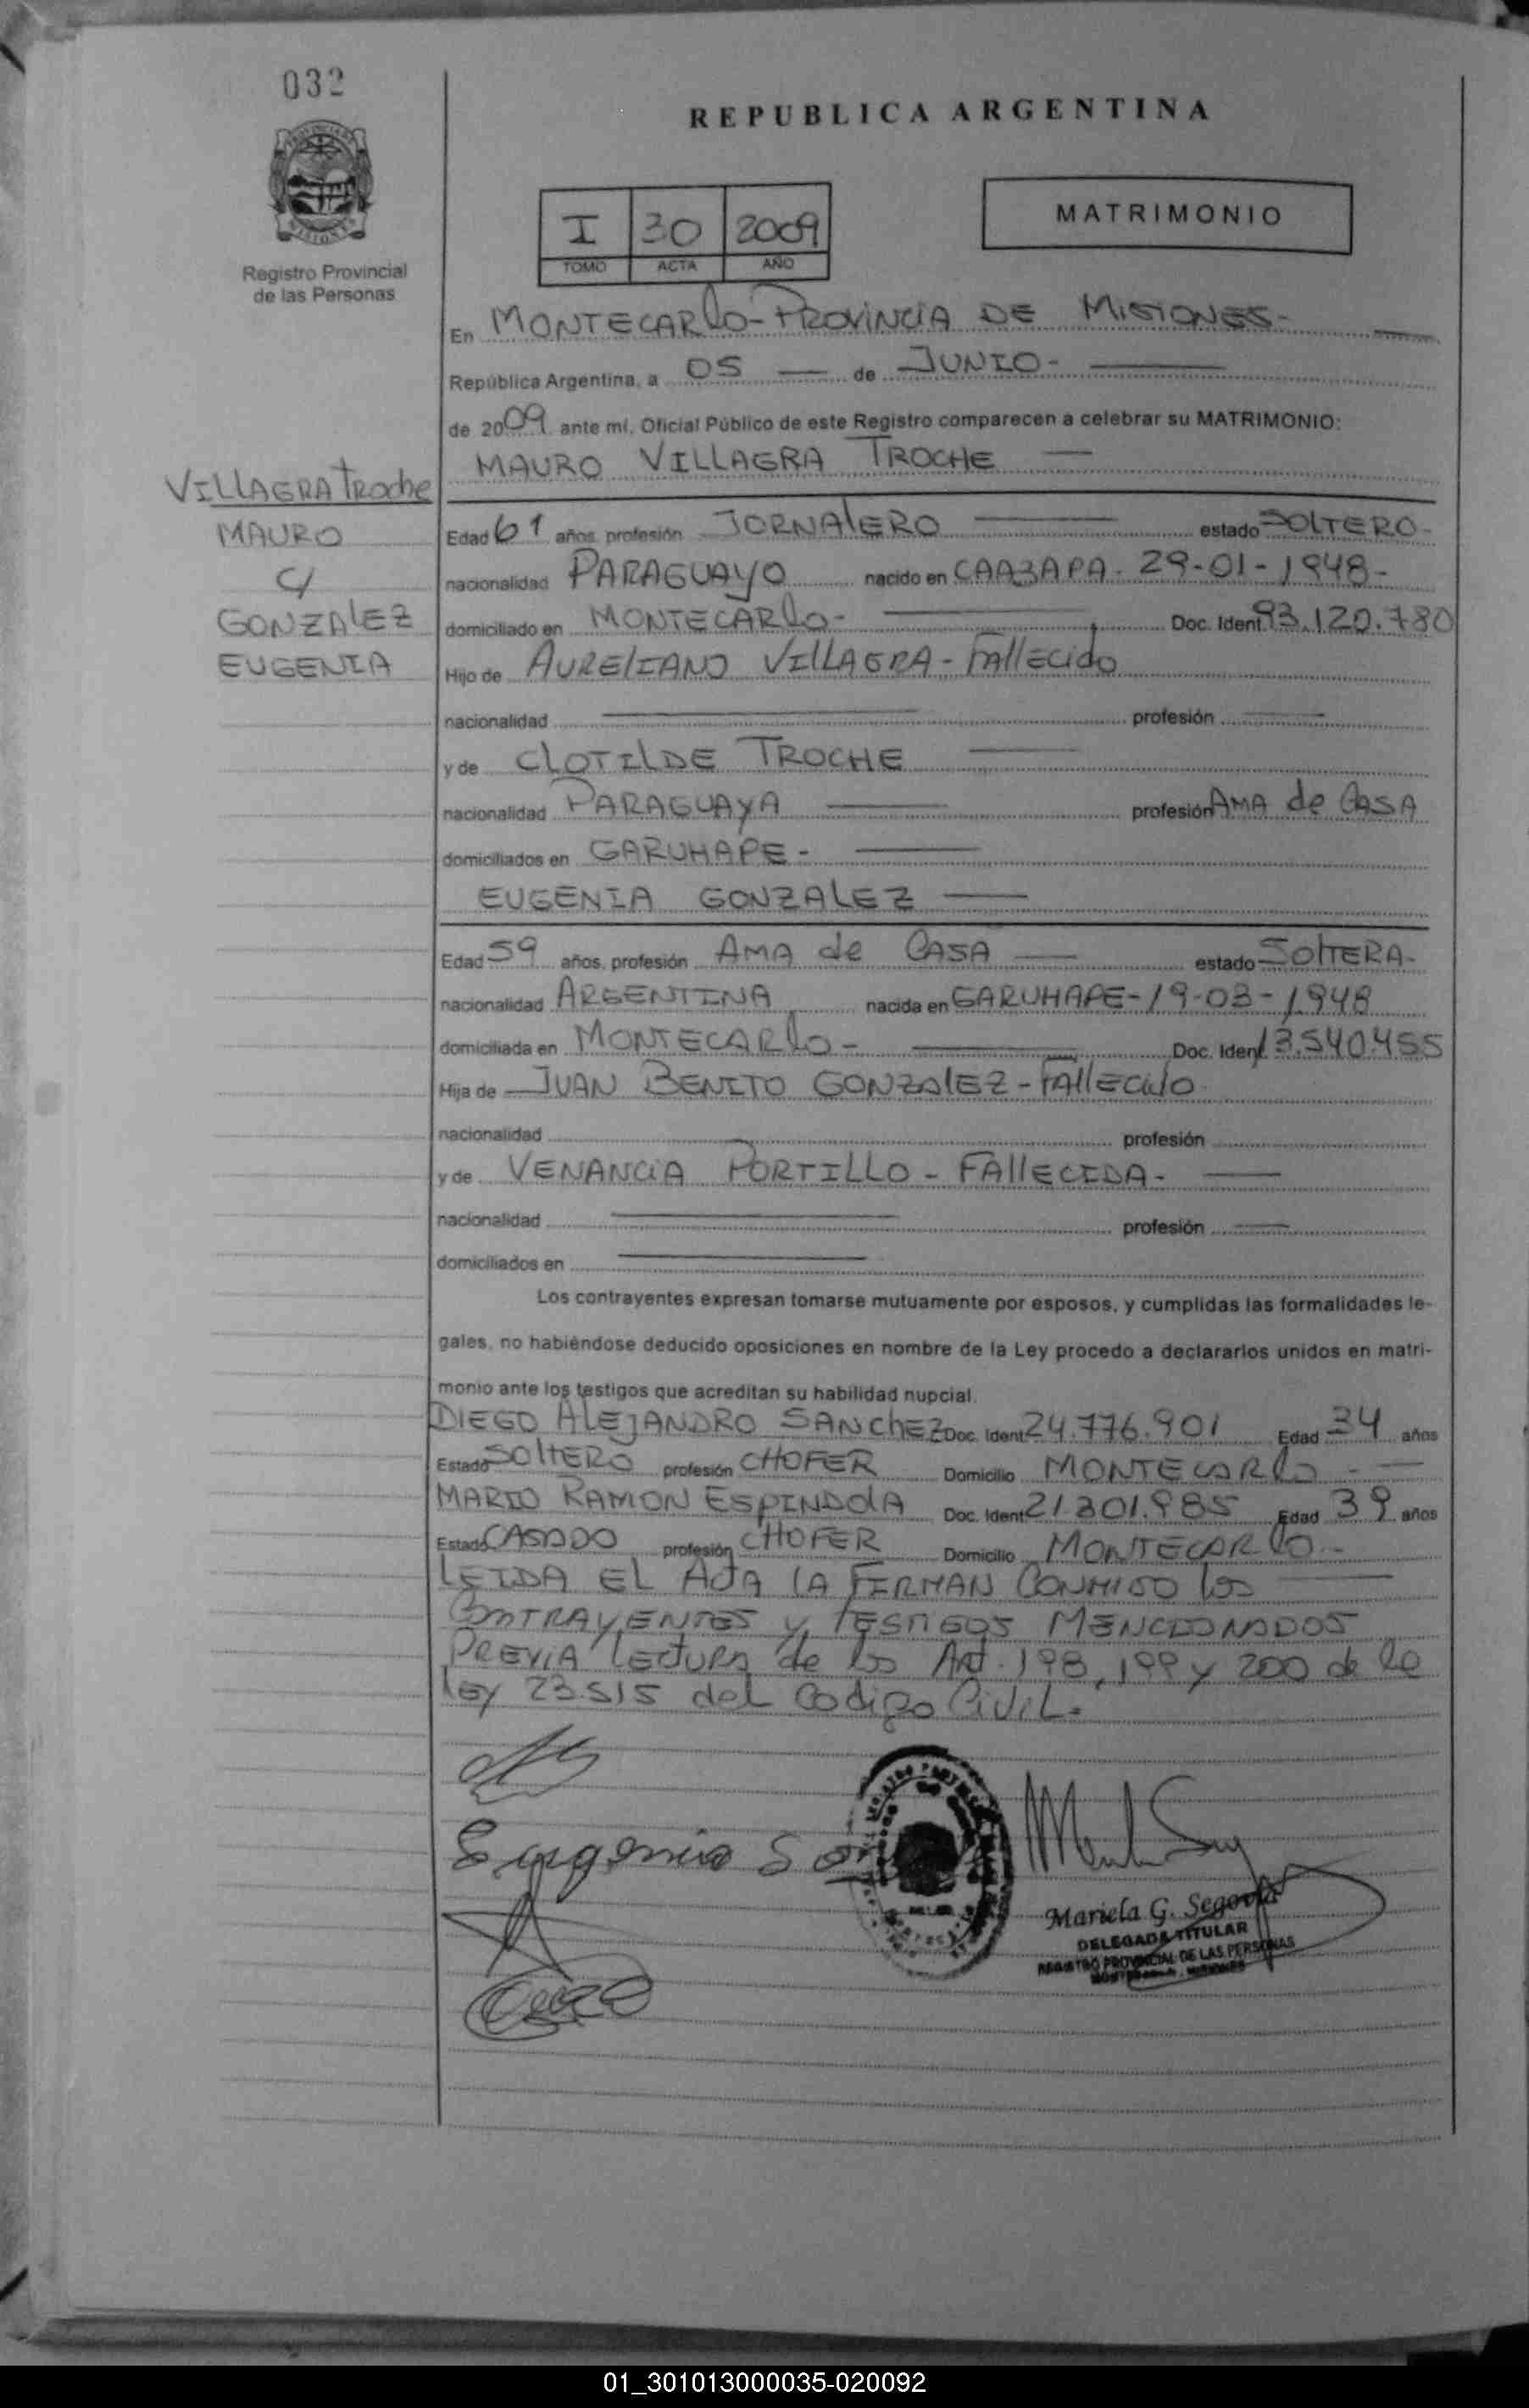 032
REPUBLICA ARGENTINA
MATRIMONIO
I 30 2009
TOMO ACTA AÑO
Registro Provincial
de las Personas
En MONTECARLO - PROVINCIA DE MISIONES -
República Argentina, a 05 — de JUNIO -
de 2009 ante mí, Oficial Público de este Registro comparecen a celebrar su MATRIMONIO:
MAURO VILLAGRA TROCHE —
VILLAGRA Troche
MAURO
C/
GONZALEZ
EUGENIA
Edad 61 años, profesión JORNALERO — estado SOLTERO -
nacionalidad PARAGUAYO nacido en CAAZAPA - 29-01-1948 -
domiciliado en MONTECARLO - — Doc. Ident 93.120.780
Hijo de AURELIANO VILLAGRA - Fallecido
nacionalidad — profesión —
y de CLOTILDE TROCHE —
nacionalidad PARAGUAYA — profesión AMA de CASA
domiciliados en GARUHAPE - —
EUGENIA GONZALEZ —
Edad 59 años, profesión AMA de CASA — estado SOLTERA -
nacionalidad ARGENTINA nacida en GARUHAPE - 19-03-1948
domiciliada en MONTECARLO - — Doc. Ident 13.540.455
Hija de JUAN BENITO GONZALEZ - FALLECIDO
nacionalidad profesión
y de VENANCIA PORTILLO - FALLECIDA - —
nacionalidad — profesión —
domiciliados en —
Los contrayentes expresan tomarse mutuamente por esposos, y cumplidas las formalidades le-
gales, no habiéndose deducido oposiciones en nombre de la Ley procedo a declararlos unidos en matri-
monio ante los testigos que acreditan su habilidad nupcial.
DIEGO ALEJANDRO SANCHEZ Doc. Ident 24.776.901 Edad 34 años
Estado SOLTERO profesión CHOFER Domicilio MONTECARLO - —
MARIO RAMON ESPINDOLA Doc. Ident 21.301.985 Edad 39 años
Estado CASADO profesión CHOFER Domicilio MONTECARLO -
LEIDA EL ACTA LA FIRMAN CONMIGO los —
CONTRAYENTES y TESTIGOS MENCIONADOS
PREVIA lectura de los Art. 198, 199 y 200 de la
ley 23.515 del Codigo Civil.
Eugenia
Mariela G. Segovia
DELEGADA TITULAR
REGISTRO PROVINCIAL DE LAS PERSONAS
01_301013000035-020092